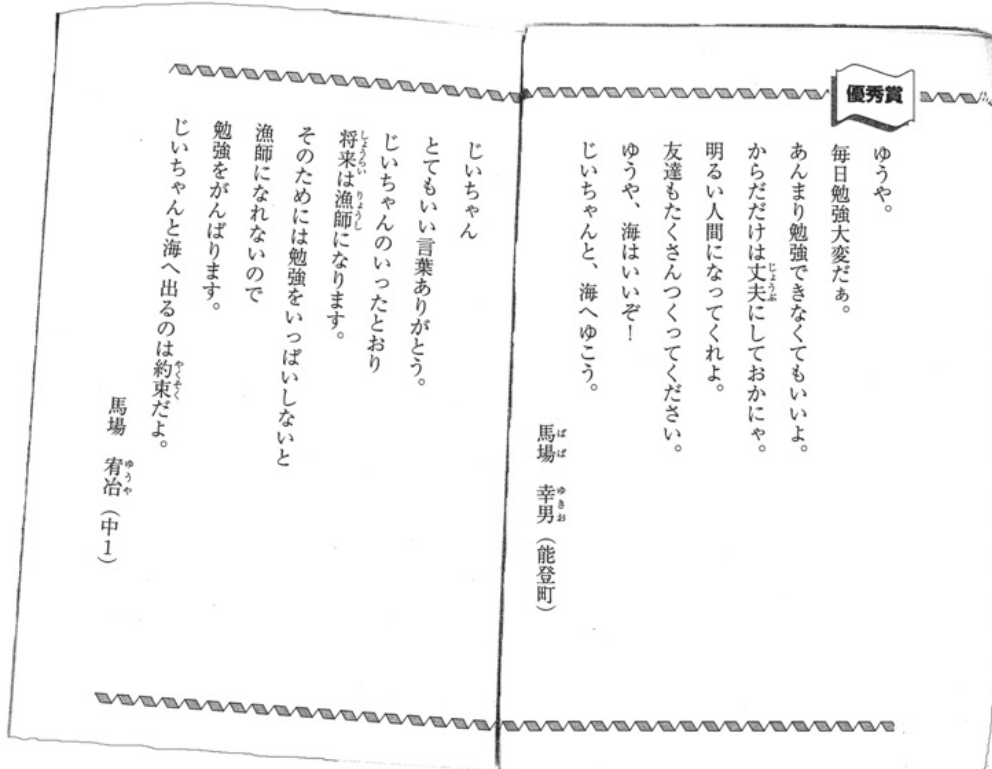 優秀賞
ゆうや。
毎日勉強大変だぁ。
あんまり勉強できなくてもいいよ。
からだだけは丈夫にしておかにゃ。
じょうぶ
明るい人間になってくれよ。
友達もたくさんつくってください。
ゆうや、海はいいぞ！
じいちゃんと、海へゆこう。
馬場 幸男（能登町）
ばば ゆきお
じいちゃん
とてもいい言葉ありがとう。
じいちゃんのいったとおり
将来は漁師になります。
しょうらい りょうし
そのためには勉強をいっぱいしないと
漁師になれないので
勉強をがんばります。
じいちゃんと海へ出るのは約束だよ。
やくそく
馬場 宥冶（中1）
ゆうや